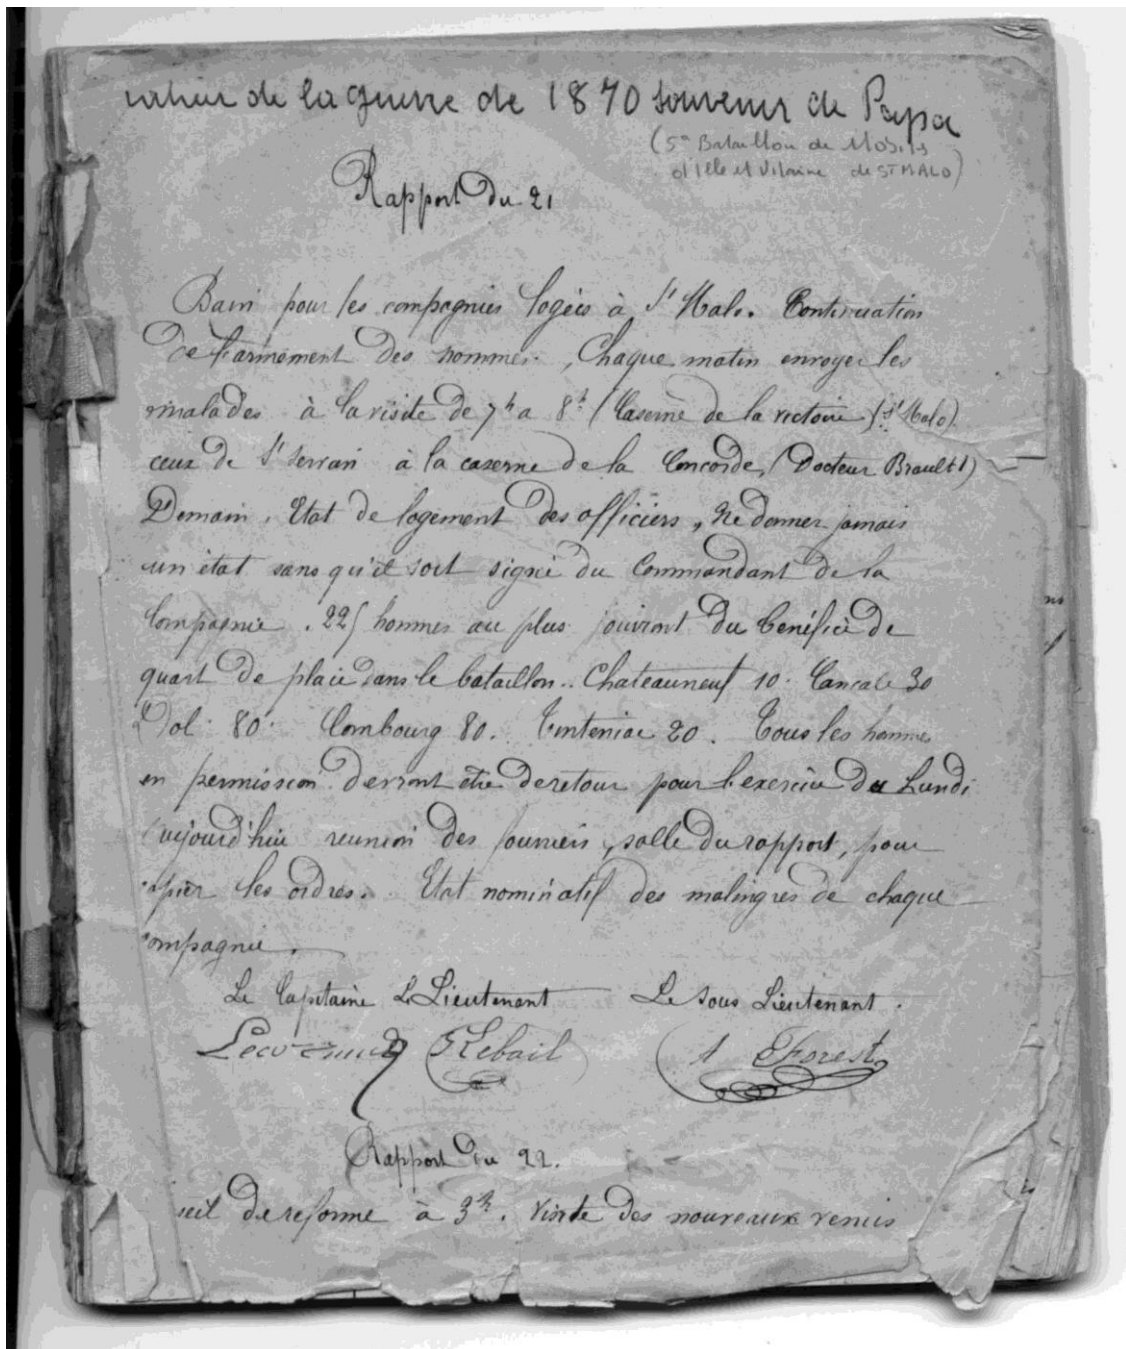 cahier de la guerre de 1870 souvenir de Papa
(5e Bataillon de Mobiles
d'Ille et Vilaine de ST MALO)
Rapport du 21
Bain pour les compagnies logées à St Malo. Continuation
de l'armement des hommes. Chaque matin envoyer les
malades à la visite de 7h a 8h (Caserne de la victoire) (St Malo)
ceux de St Servan à la caserne de la Concorde, (Docteur Brault)
Demain, Etat de logement des officiers, Ne donner jamais
un état sans qu'il soit signé du Commandant de la
Compagnie. 225 hommes au plus jouiront du bénéfice de
quart de place dans le bataillon.. Chateauneuf 10. Cancale 30
Dol. 80. Combourg 80. Tinteniac 20. Tous les hommes
en permission devront être de retour pour l'exercice du Lundi
aujourd'hui reunion des fourriers, salle du rapport, pour
copier les ordres. Etat nominatif des malingres de chaque
compagnie.
Le Capitaine Le Lieutenant Le sous Lieutenant.
Rebail A Forest
Rapport du 22.
de reforme à 3h. Visite des nouveaux venus